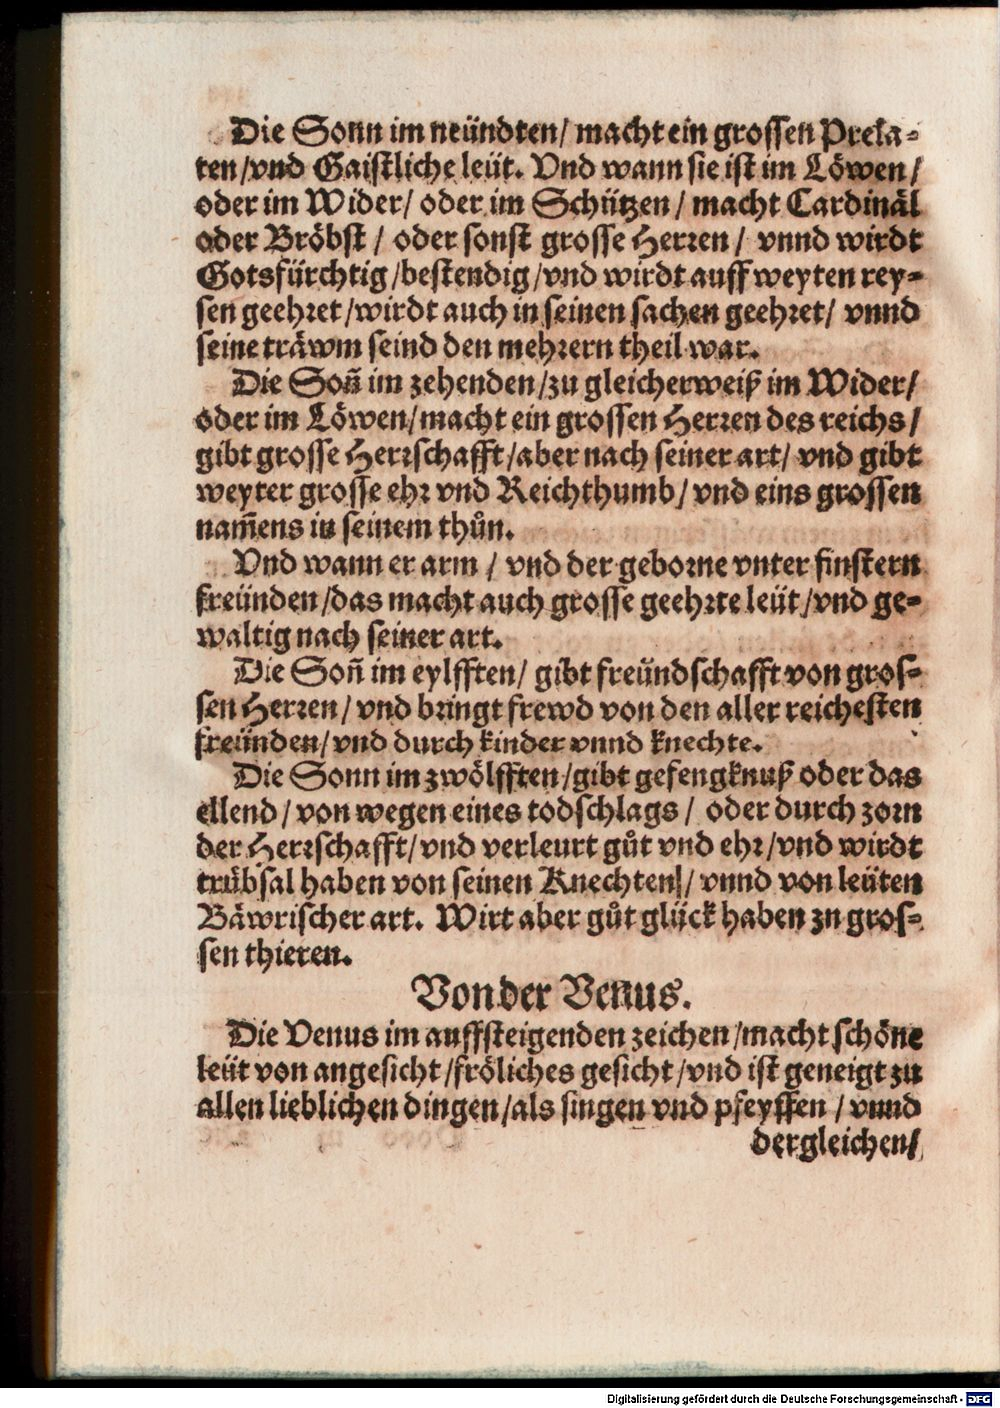 Die Sonn im neündten/ macht ein grossen Prela-
ten/vnd Gaistliche leüt. Vnd wann sie ist im Löwen/
oder im Wider/ oder im Schützen/ macht Cardinäl
oder Bröbst/ oder sonst grosse Herren/ vnnd wirdt
Gotsfürchtig/bestendig/vnd wirdt auff weyten rey-
sen geehret/wirdt auch in seinen sachen geehret/ vnnd
seine träwm seind den mehrern theil war.
Die Son̄ im zehenden/zu gleicherweiß im Wider/
oder im Löwen/macht ein grossen Herren des reichs/
gibt grosse Herrschafft/aber nach seiner art/ vnd gibt
weyter grosse ehr vnd Reichthumb/ vnd eins grossen
nam̄ens in seinem thůn.
Vnd wann er arm/ vnd der geborne vnter finstern
freünden/das macht auch grosse geehrte leüt/vnd ge-
waltig nach seiner art.
Die Son̄ im eylfften/ gibt freündschafft von gros-
sen Herren/ vnd bringt frewd von den aller reichesten
freünden/vnd durch kinder vnnd knechte.
Die Sonn im zwölfften/gibt gefengknuß oder das
ellend/ von wegen eines todschlags/ oder durch zorn
der Herrschafft/vnd verleurt gůt vnd ehr/vnd wirdt
trübsal haben von seinen Knechten/ vnnd von leüten
Bäwrischer art. Wirt aber gůt glück haben zu gros-
sen thieren.
Von der Venus.
Die Venus im auffsteigenden zeichen/macht schöne
leüt von angesicht/fröliches gesicht/vnd ist geneigt zu
allen lieblichen dingen/als singen vnd pfeyffen/ vnnd
dergleichen/
Digitalisierung gefördert durch die Deutsche Forschungsgemeinschaft - DFG